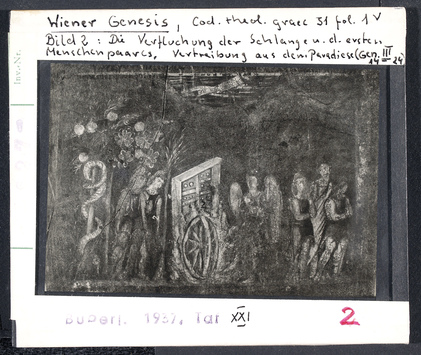 Wiener Genesis, Cod. theol. graec 31 fol. 1 V
Bild 2: Die Verfluchung der Schlange u. d. ersten
Menschenpaares, Vertreibung aus dem Paradiese (Gen. III
14 - 24)
Inv.-Nr.
Buberl. 1937, Taf XXI
2